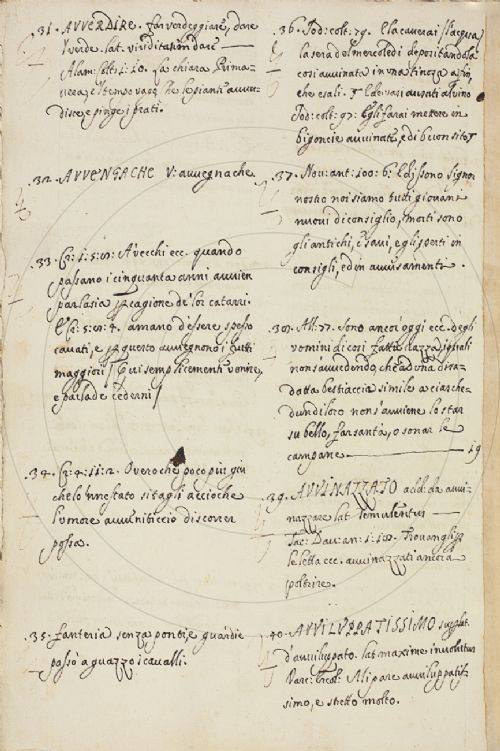 .31. AVVERDIRE. far verdeggiare, dare
verde. lat. viriditatem dare —
Alam: colt: 1: 10. La chiara Prima-
vera, e'l tempo vago che le piante avver-
disce, e pinge i prati.
.32. AVVENGACHE V: avvegnache
.33. Cr: 1: 5: A'vecchi ecc. quando
passano i cinquanta anni avvien
parlasia cagione de' lor catarri.
E Cr: 5: 4. amano d'essere spesso
cavati, e questo avvegnono i tutti
maggiori qui semplicemente venire,
e parla de' cederni
.34. Cr: 4: 11: 2. Overo che poco più giu
che lo'nnestato si tagli acciocche
l'umore discorrer
possa.
.35. fanteria senza ponti e guardie
passò a guazzo i cavalli.
.36. Sod: colt: 79. E la caverai l'acqua
la sera del mercoledi depositandola
cosi avvinata in una tinozza
che esali. E de' vasi usati al vino
Sod: colt: 97: E gli farai mettere in
bigoncie avvinate, e di buon sito
.37. Nov: ant: 100: 6. Ed issono signor
nostro noi siamo tutti giovani
nuovi di consiglio, morti sono
gli antichi, e savi, e gli sperti in
consigli, ed in avvisamenti.
.38. All: 77. sono ancor oggi ecc. degli
uomini di cosi fatta razza, i quali
non avvedendo, che ad una disa-
datta bestiaccia simile a ciasche-
duno di loro non s'avviene lo star
su bello, far santà, o sonar le
campane — 19
.39. AVVINAZZATO add: da avvi-
nazzare lat. temulentus —
Tac: Dav: an: 1: 118. Trovangli
le letta ecc. avvinazzati ancora
poltrire.
.40. AVVILUPPATISSIMO superlat.
d'avviluppato. lat. maxime involutus
Varc: Ercol: Mi pare avviluppatis-
simo, e stretto molto.